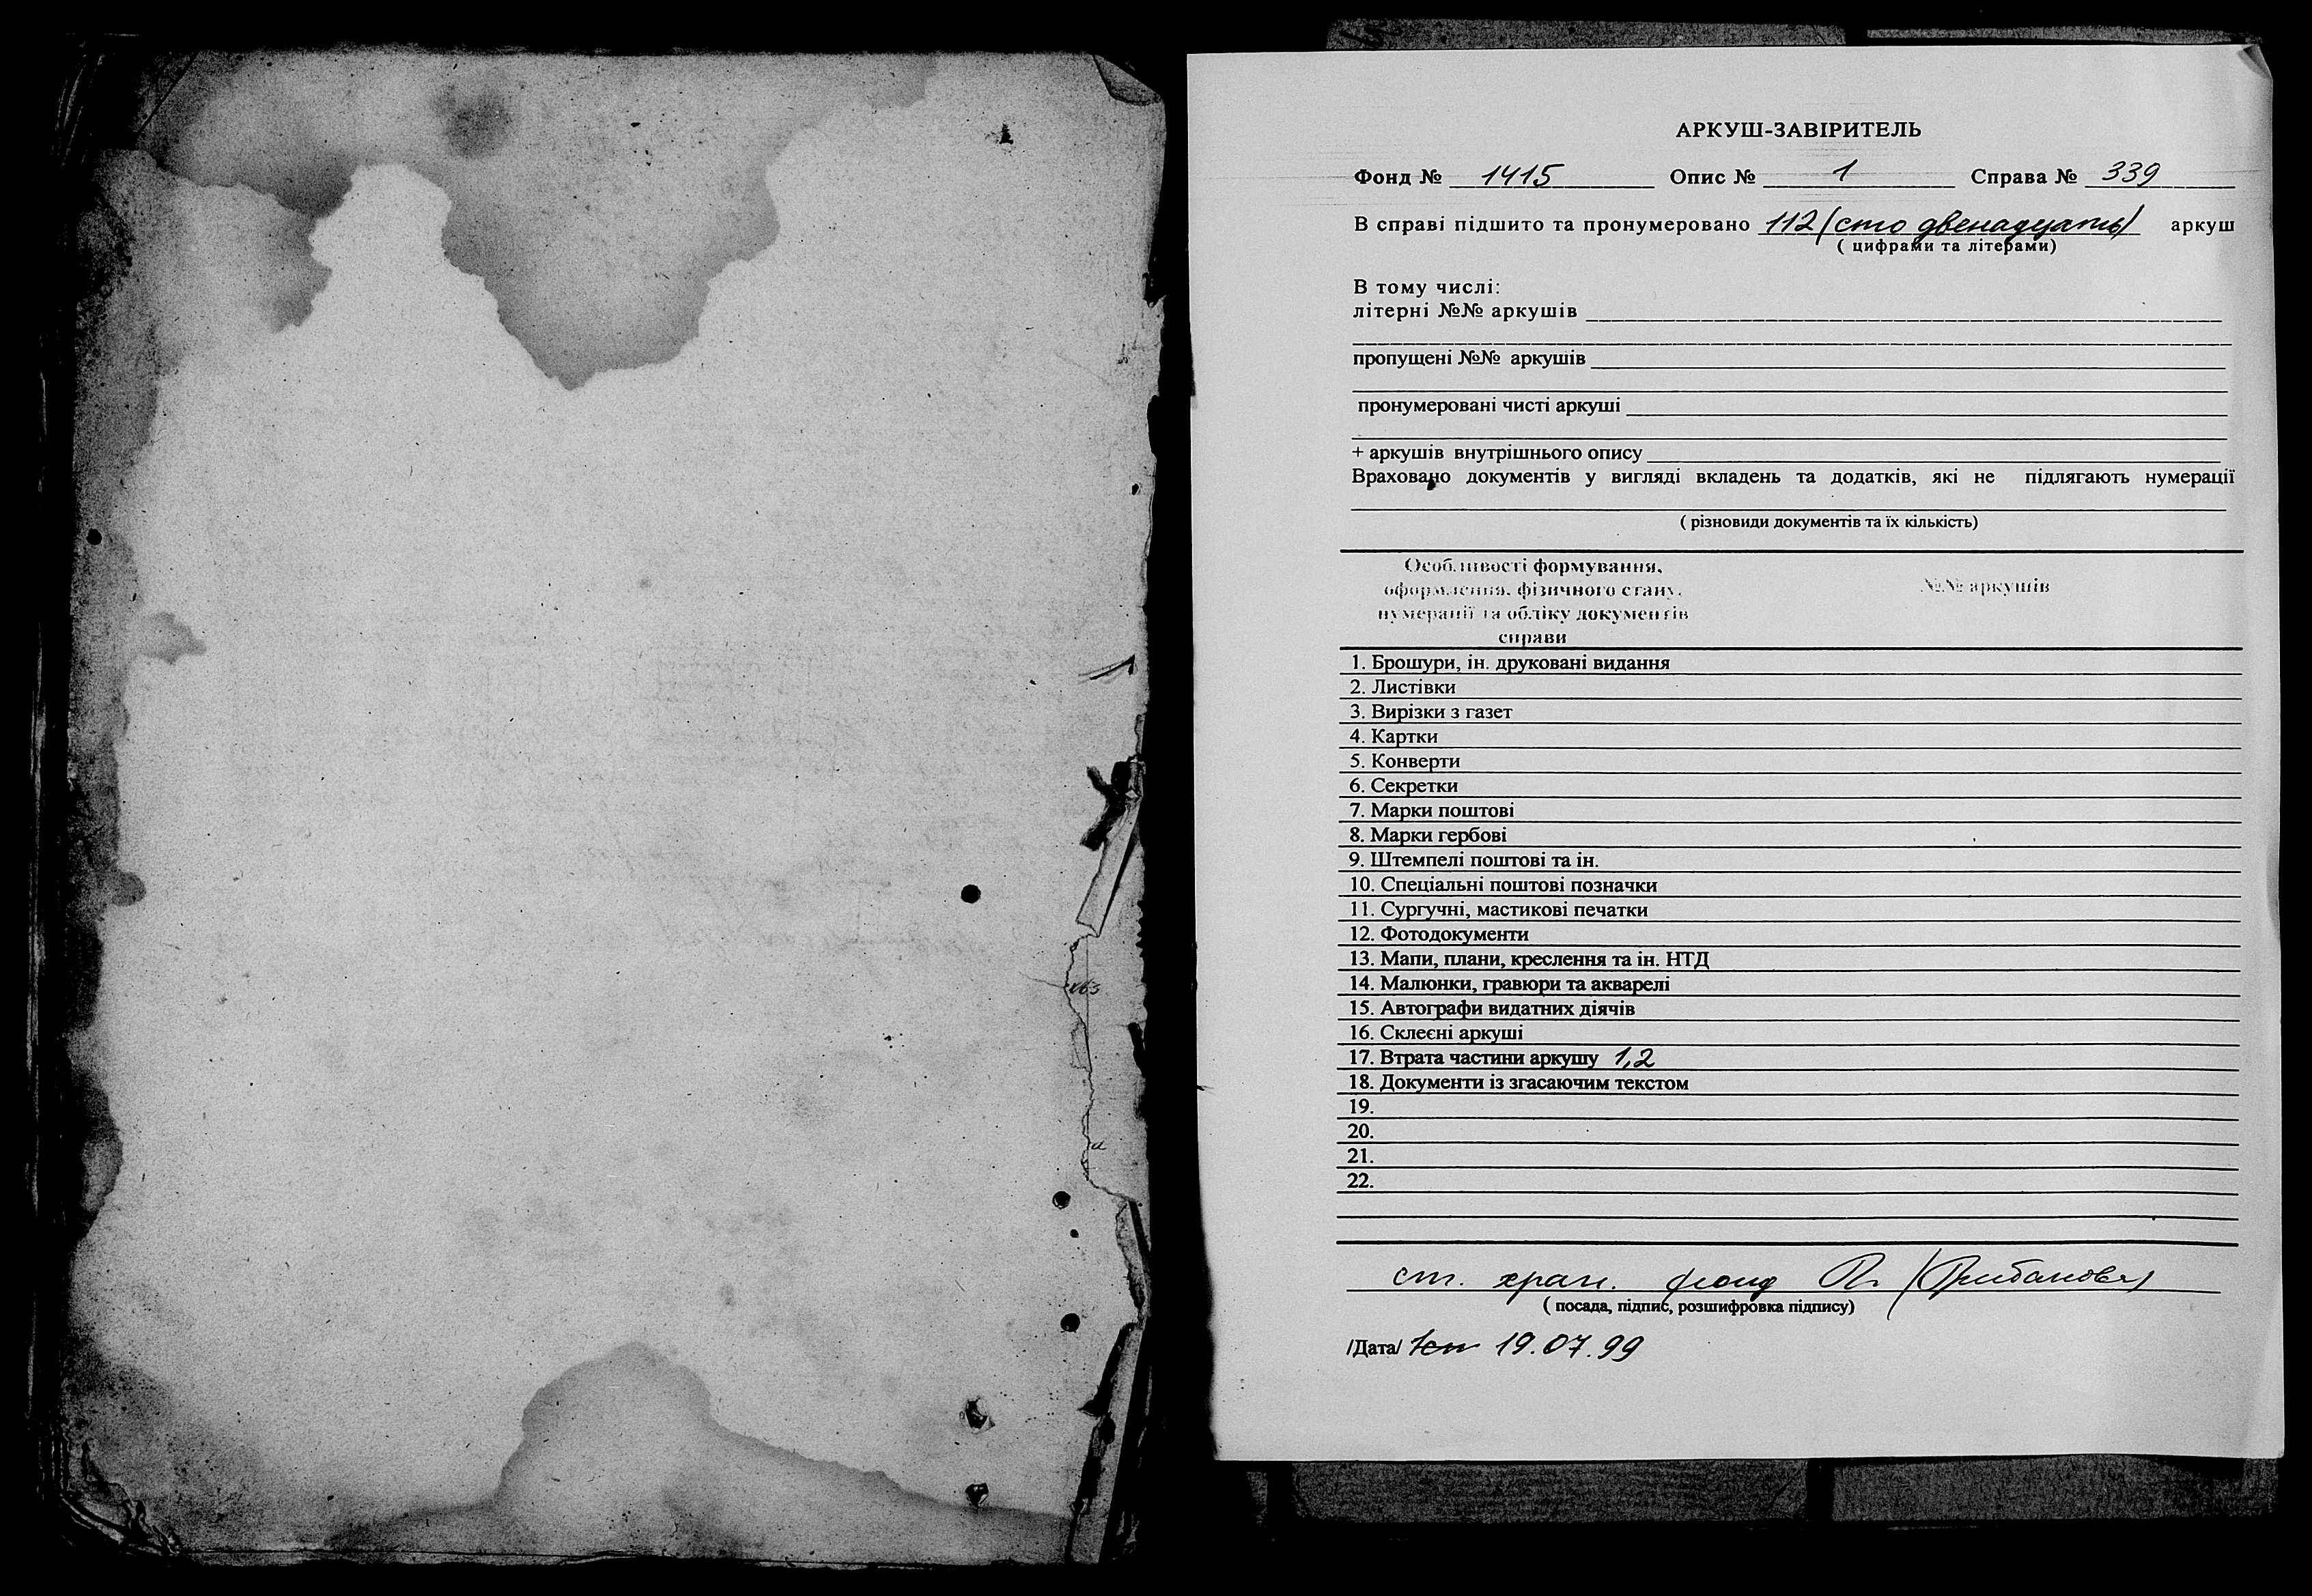 АРКУШ-ЗАВІРИТЕЛЬ
Фонд № 1415 Опис № 1 Справа № 339
В справі підшито та пронумеровано 112 (сто двенадцать) аркуш
( цифрами та літерами)
В тому числі:
літерні №№ аркушів
пропущені №№ аркушів
пронумеровані чисті аркуші
+ аркушів внутрішнього опису
Враховано документів у вигляді вкладень та додатків, які не підлягають нумерації
( різновиди документів та їх кількість)
Особливості формування,
оформлення, фізичного стану,
нумерації та обліку документів
справи
№№ аркушів
1. Брошури, ін. друковані видання
2. Листівки
3. Вирізки з газет
4. Картки
5. Конверти
6. Секретки
7. Марки поштові
8. Марки гербові
9. Штемпелі поштові та ін.
10. Спеціальні поштові позначки
11. Сургучні, мастикові печатки
12. Фотодокументи
13. Мапи, плани, креслення та ін. НТД
14. Малюнки, гравюри та акварелі
15. Автографи видатних діячів
16. Склеєні аркуші
17. Втрата частини аркушу 1,2
18. Документи із згасаючим текстом
19.
20.
21.
22.
ст. хран. фонд
( посада, підпис, розшифровка підпису)
/Дата/ 19.07.99